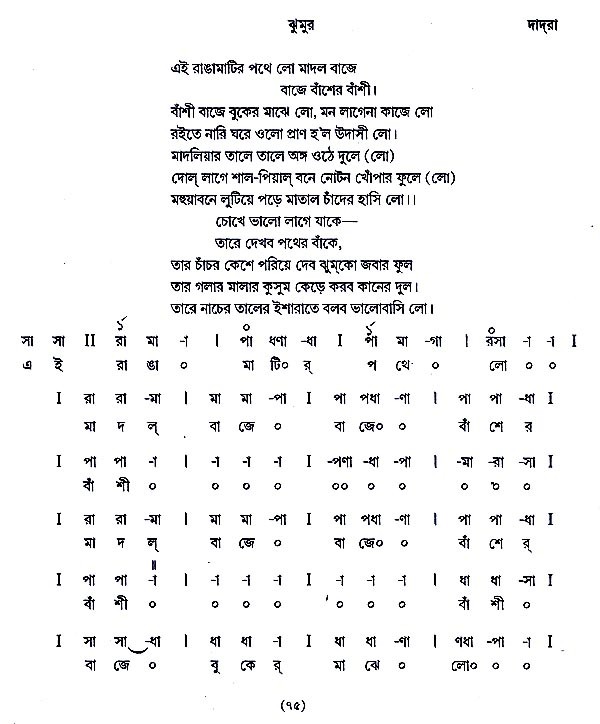 ঝুমুর দাদ্‌রা
এই রাঙামাটির পথে লো মাদল বাজে
বাজে বাঁশের বাঁশী।
বাঁশী বাজে বুকের মাঝে লো, মন লাগেনা কাজে লো
রইতে নারি ঘরে ওলো প্রাণ হ'ল উদাসী লো।
মাদলিয়ার তালে তালে অঙ্গ ওঠে দুলে (লো)
দোল্ লাগে শাল-পিয়াল্ বনে নোটন খোঁপার ফুলে (লো)
মহুয়াবনে লুটিয়ে পড়ে মাতাল চাঁদের হাসি লো।।
চোখে ভালো লাগে যাকে—
তারে দেখব পথের বাঁকে,
তার চাঁচর কেশে পরিয়ে দেব ঝুম্‌কো জবার ফুল
তার গলার মালার কুসুম কেড়ে করব কানের দুল।
তারে নাচের তালের ইশারাতে বলব ভালোবাসি লো।
১ ০ ১ ০
সা সা II রা মা -া | পা ধণা -ধা I পা মা -গা | রসা -া -া I
এ ই রা ঙা ০ মা টি০ র্ প থে ০ লো ০ ০
I রা রা -মা | মা মা -পা I পা পধা -ণা | পা পা -ধা I
মা দ ল্ বা জে ০ বা জে০ ০ বাঁ শে র
I পা পা -া | -া -া -া I -পণা -ধা -পা | -মা -রা -সা I
বাঁ শী ০ ০ ০ ০ ০০ ০ ০ ০ ০ ০
I রা রা -মা | মা মা -পা I পা পধা -ণা | পা পা -ধা I
মা দ ল্ বা জে ০ বা জে০ ০ বাঁ শে র্
॥
I পা পা -া | -া -া -া I -া -া -া | ধা ধা -সা I
বাঁ শী ০ ০ ০ ০ ০ ০ ০ বাঁ শী ০
I সা সা -ধা | ধা ধা -া I ধা ধা -ণা | ণধা -পা -া I
বা জে ০ বু কে র্ মা ঝে ০ লো০ ০ ০
(৭৫)